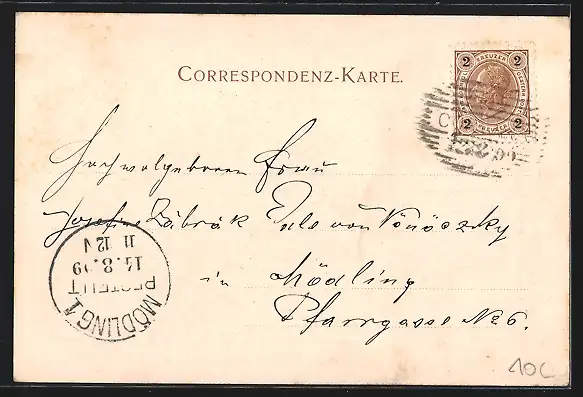 CORRESPONDENZ-KARTE.
2 KREUZER 2
2 KREUZER 2
99
Hochwolgeboren Frau
Josefine Zábrák Edle von Vönöczky
in Mödling
Pfarrgasse No 6.
MÖDLING 1
BESTELLT
14.8.99
11-12V
10C